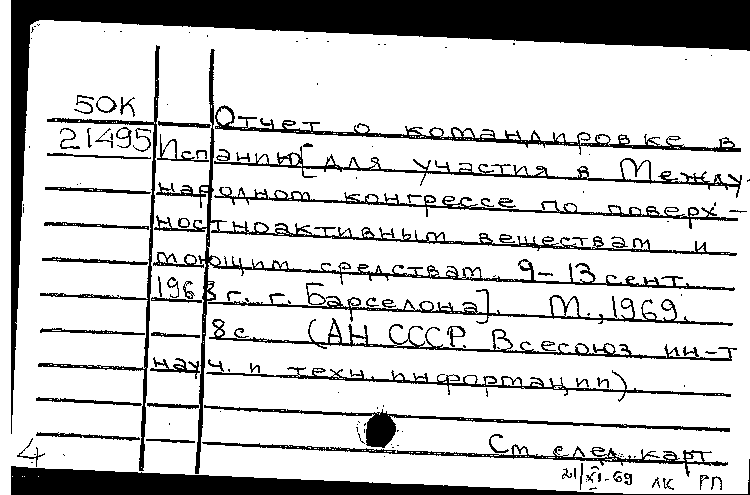 50К
21495
Отчет о командировке в
Испанию [для участия в Между-
народном конгрессе по поверх-
ностноактивным веществам и
моющим средствам. 9-13 сент.
1968 г. г. Барселона]. М., 1969.
8с. (АН СССР. Всесоюз. ин-т
науч. и техн. информации).
См. след. карт.
4
21/XI-69 ЛК РП